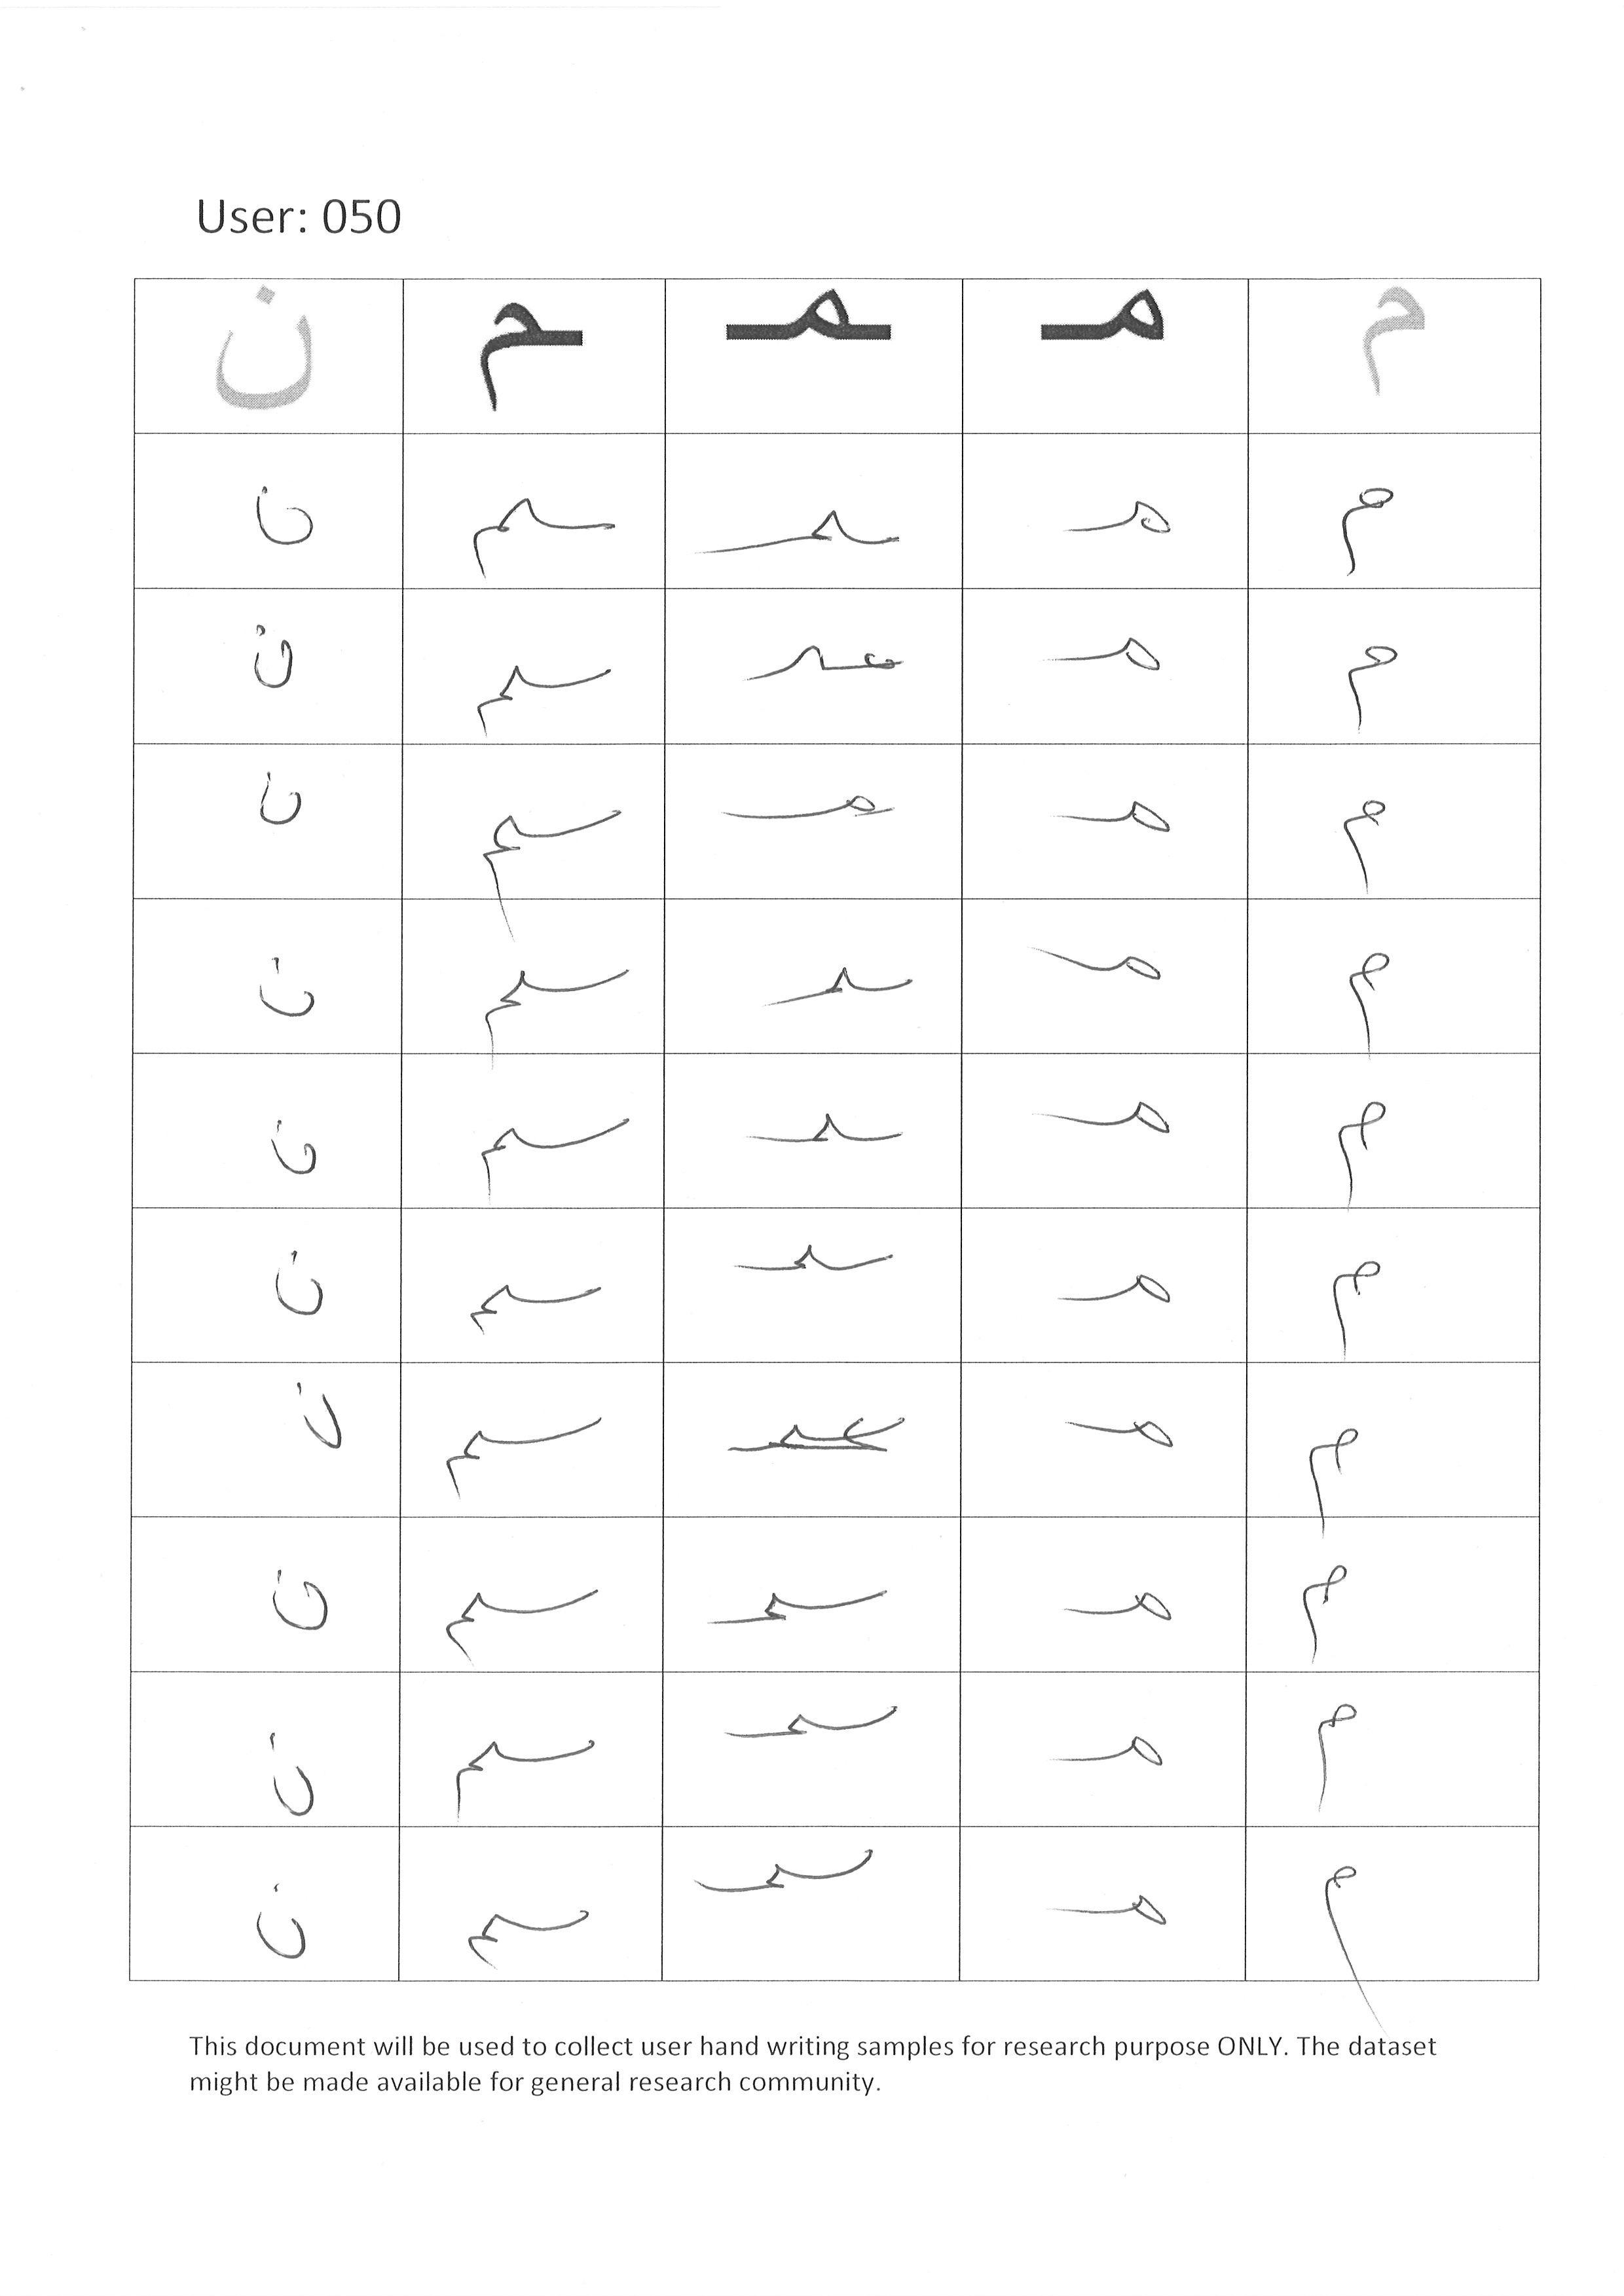 User: 050
م مـ ـمـ ـم ن
م مـ ـمـ ـم ن
م مـ ـمـ ـم ن
م مـ ـمـ ـم ن
م مـ ـمـ ـم ن
م مـ ـمـ ـم ن
م مـ ـمـ ـم ن
م مـ ـمـ ـم ن
م مـ ـمـ ـم ن
م مـ ـمـ ـم ن
م مـ ـمـ ـم ن
This document will be used to collect user hand writing samples for research purpose ONLY. The dataset
might be made available for general research community.